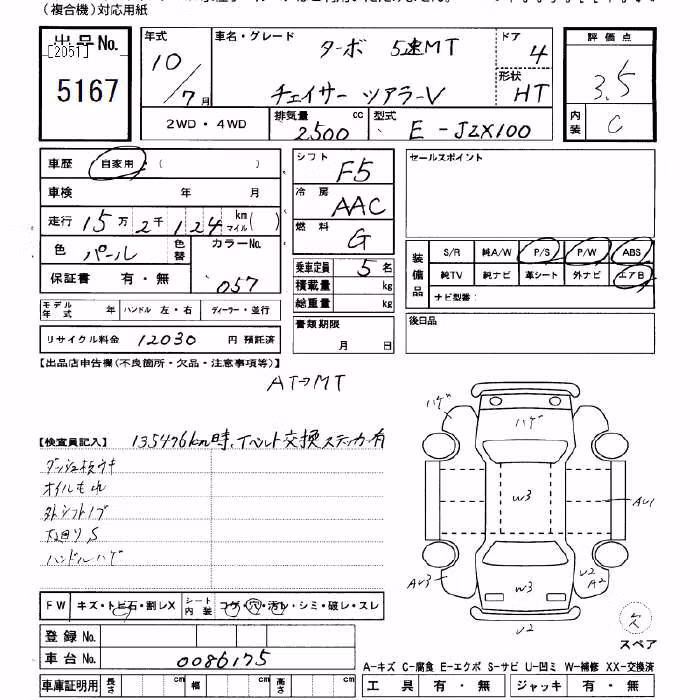 （複合機）対応用紙
出品No.
[2051]
5167
年式
10/7月
車名・グレード
ターボ 5速MT
チェイサー ツアラーV
ドア
4
形状
HT
評価点
3.5
内装
C
2WD・4WD
排気量
2500 cc
型式
E-JZX100
車歴 自家用 ( )
車検 年 月
走行 15万2千124 km マイル( )
色 パール 色替 カラーNo. 057
保証書 有・無
モデル年式 年 ハンドル 左・右 ディーラー・並行
リサイクル料金 12030 円 預託済
シフト F5
冷房 AAC
燃料 G
乗車定員 5名
積載量 kg
総重量 kg
書類期限
月 日
セールスポイント
装備品
S/R 純A/W P/S P/W ABS
純TV 純ナビ 革シート 外ナビ エアB
ナビ型番：
後日品
【出品店申告欄(不良箇所・欠品・注意事項等)】
AT→MT
【検査員記入】 135476km時、T.ベルト交換ステッカー有
ダッシュ板ウキ
オイルもれ
外シフトノブ
下回りS
ハンドルハゲ
ハゲ
ハゲ
W3
AU1
AU3
W3
U2
A2
U2
欠
スペア
FW キズ・トビ石・割レX シート内装 コゲ・穴・汚レ・シミ・破レ・スレ
登録No.
車台No. 0086175
車庫証明用 長さ cm 幅 cm 高さ cm
A-キズ C-腐食 E-エクボ S-サビ U-凹ミ W-補修 XX-交換済
工具 有・無 ジャッキ 有・無